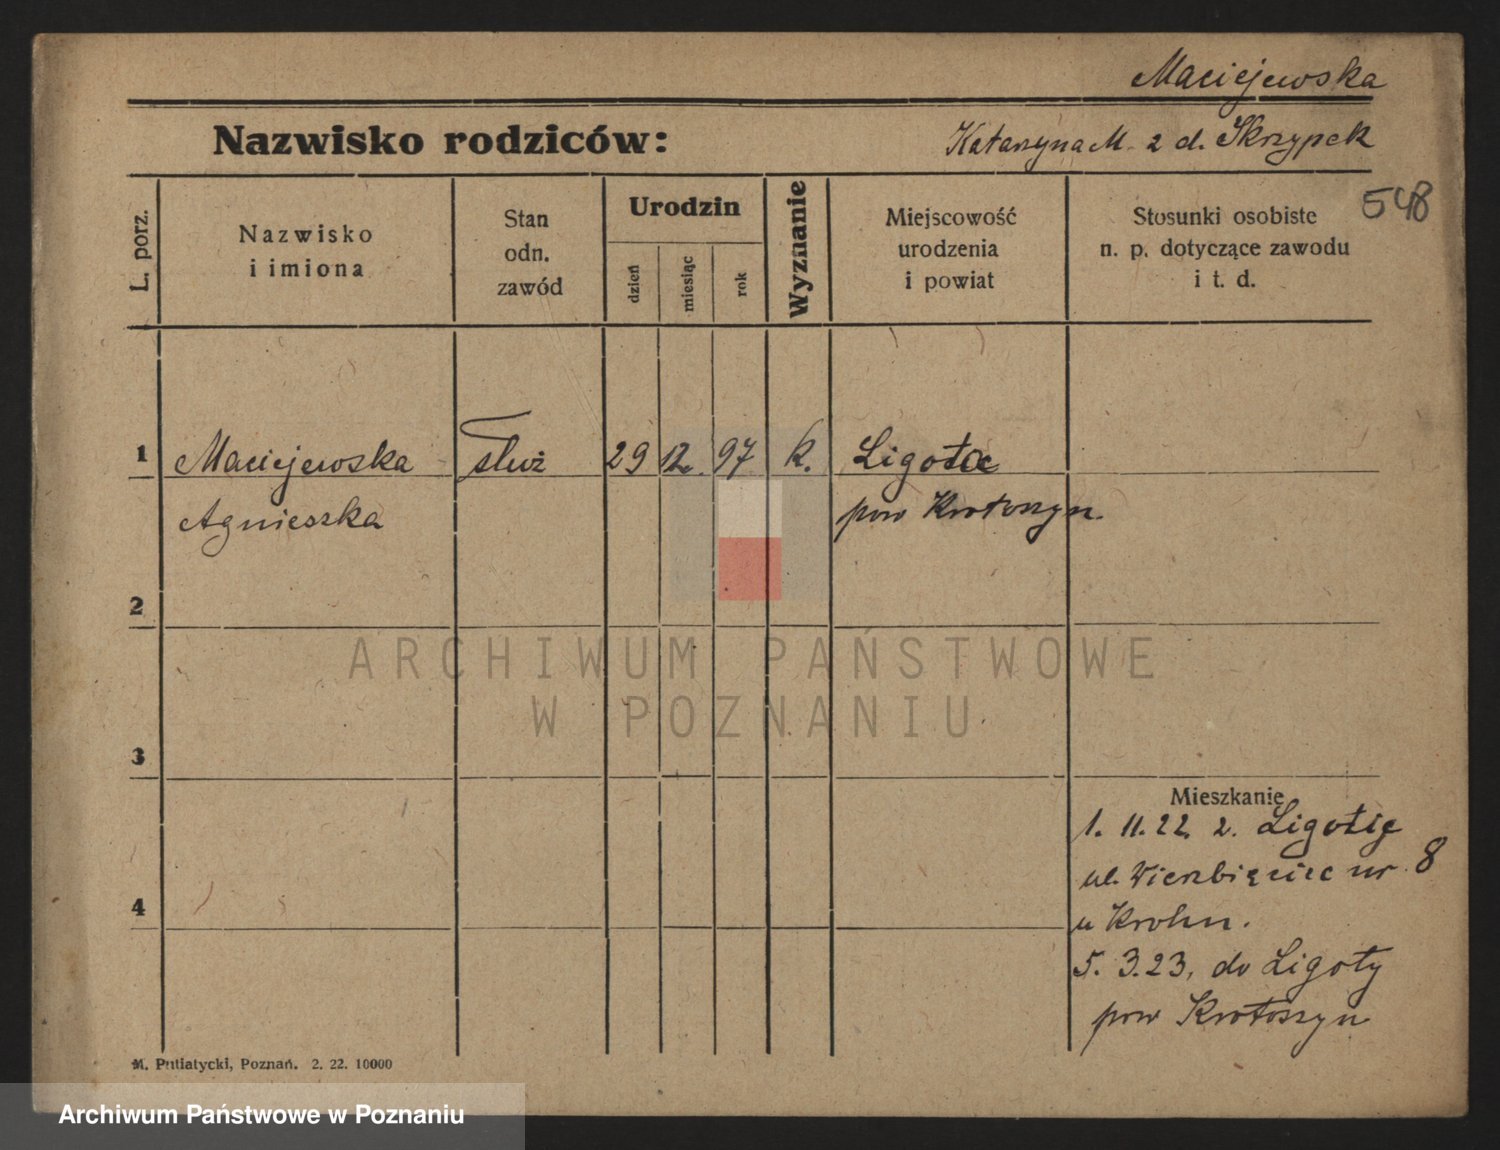 Maciejewska
Nazwisko rodziców:
Katarzyna M. 2 d. Skrzypek
548
L. porz.
Nazwisko
i imiona
Stan
odn.
zawód
Urodzin
dzień
miesiąc
rok
Wyznanie
Miejscowość
urodzenia
i powiat
Stosunki osobiste
n. p. dotyczące zawodu
i t. d.
1 Maciejewska służ 29 12. 97 k. Ligota
Agnieszka pow Krotoszyn.
2
3
4
Mieszkanie
1. 11. 22. z. Ligocie
ul. Wierzbięcice nr 8
u Krohn.
5. 3. 23, do Ligoty
pow Krotoszyn
M. Putiatycki, Poznań. 2. 22. 10000
ARCHIWUM PAŃSTWOWE
W POZNANIU
Archiwum Państwowe w Poznaniu